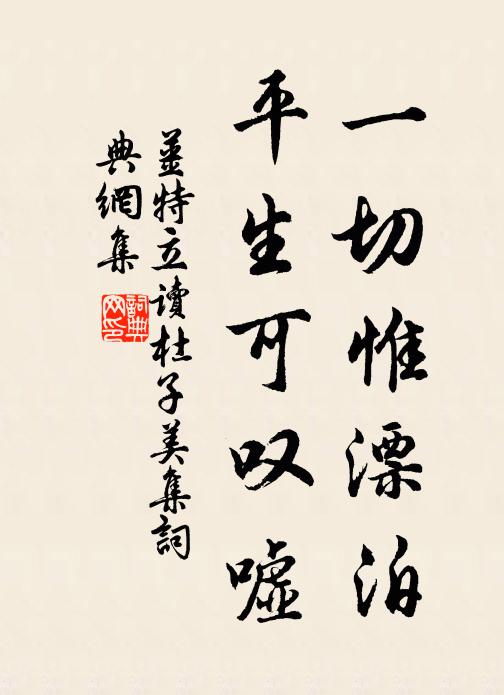 一切惟漂泊
平生可叹嘘
姜特立读杜子美集詞
典網集
詞典
网印